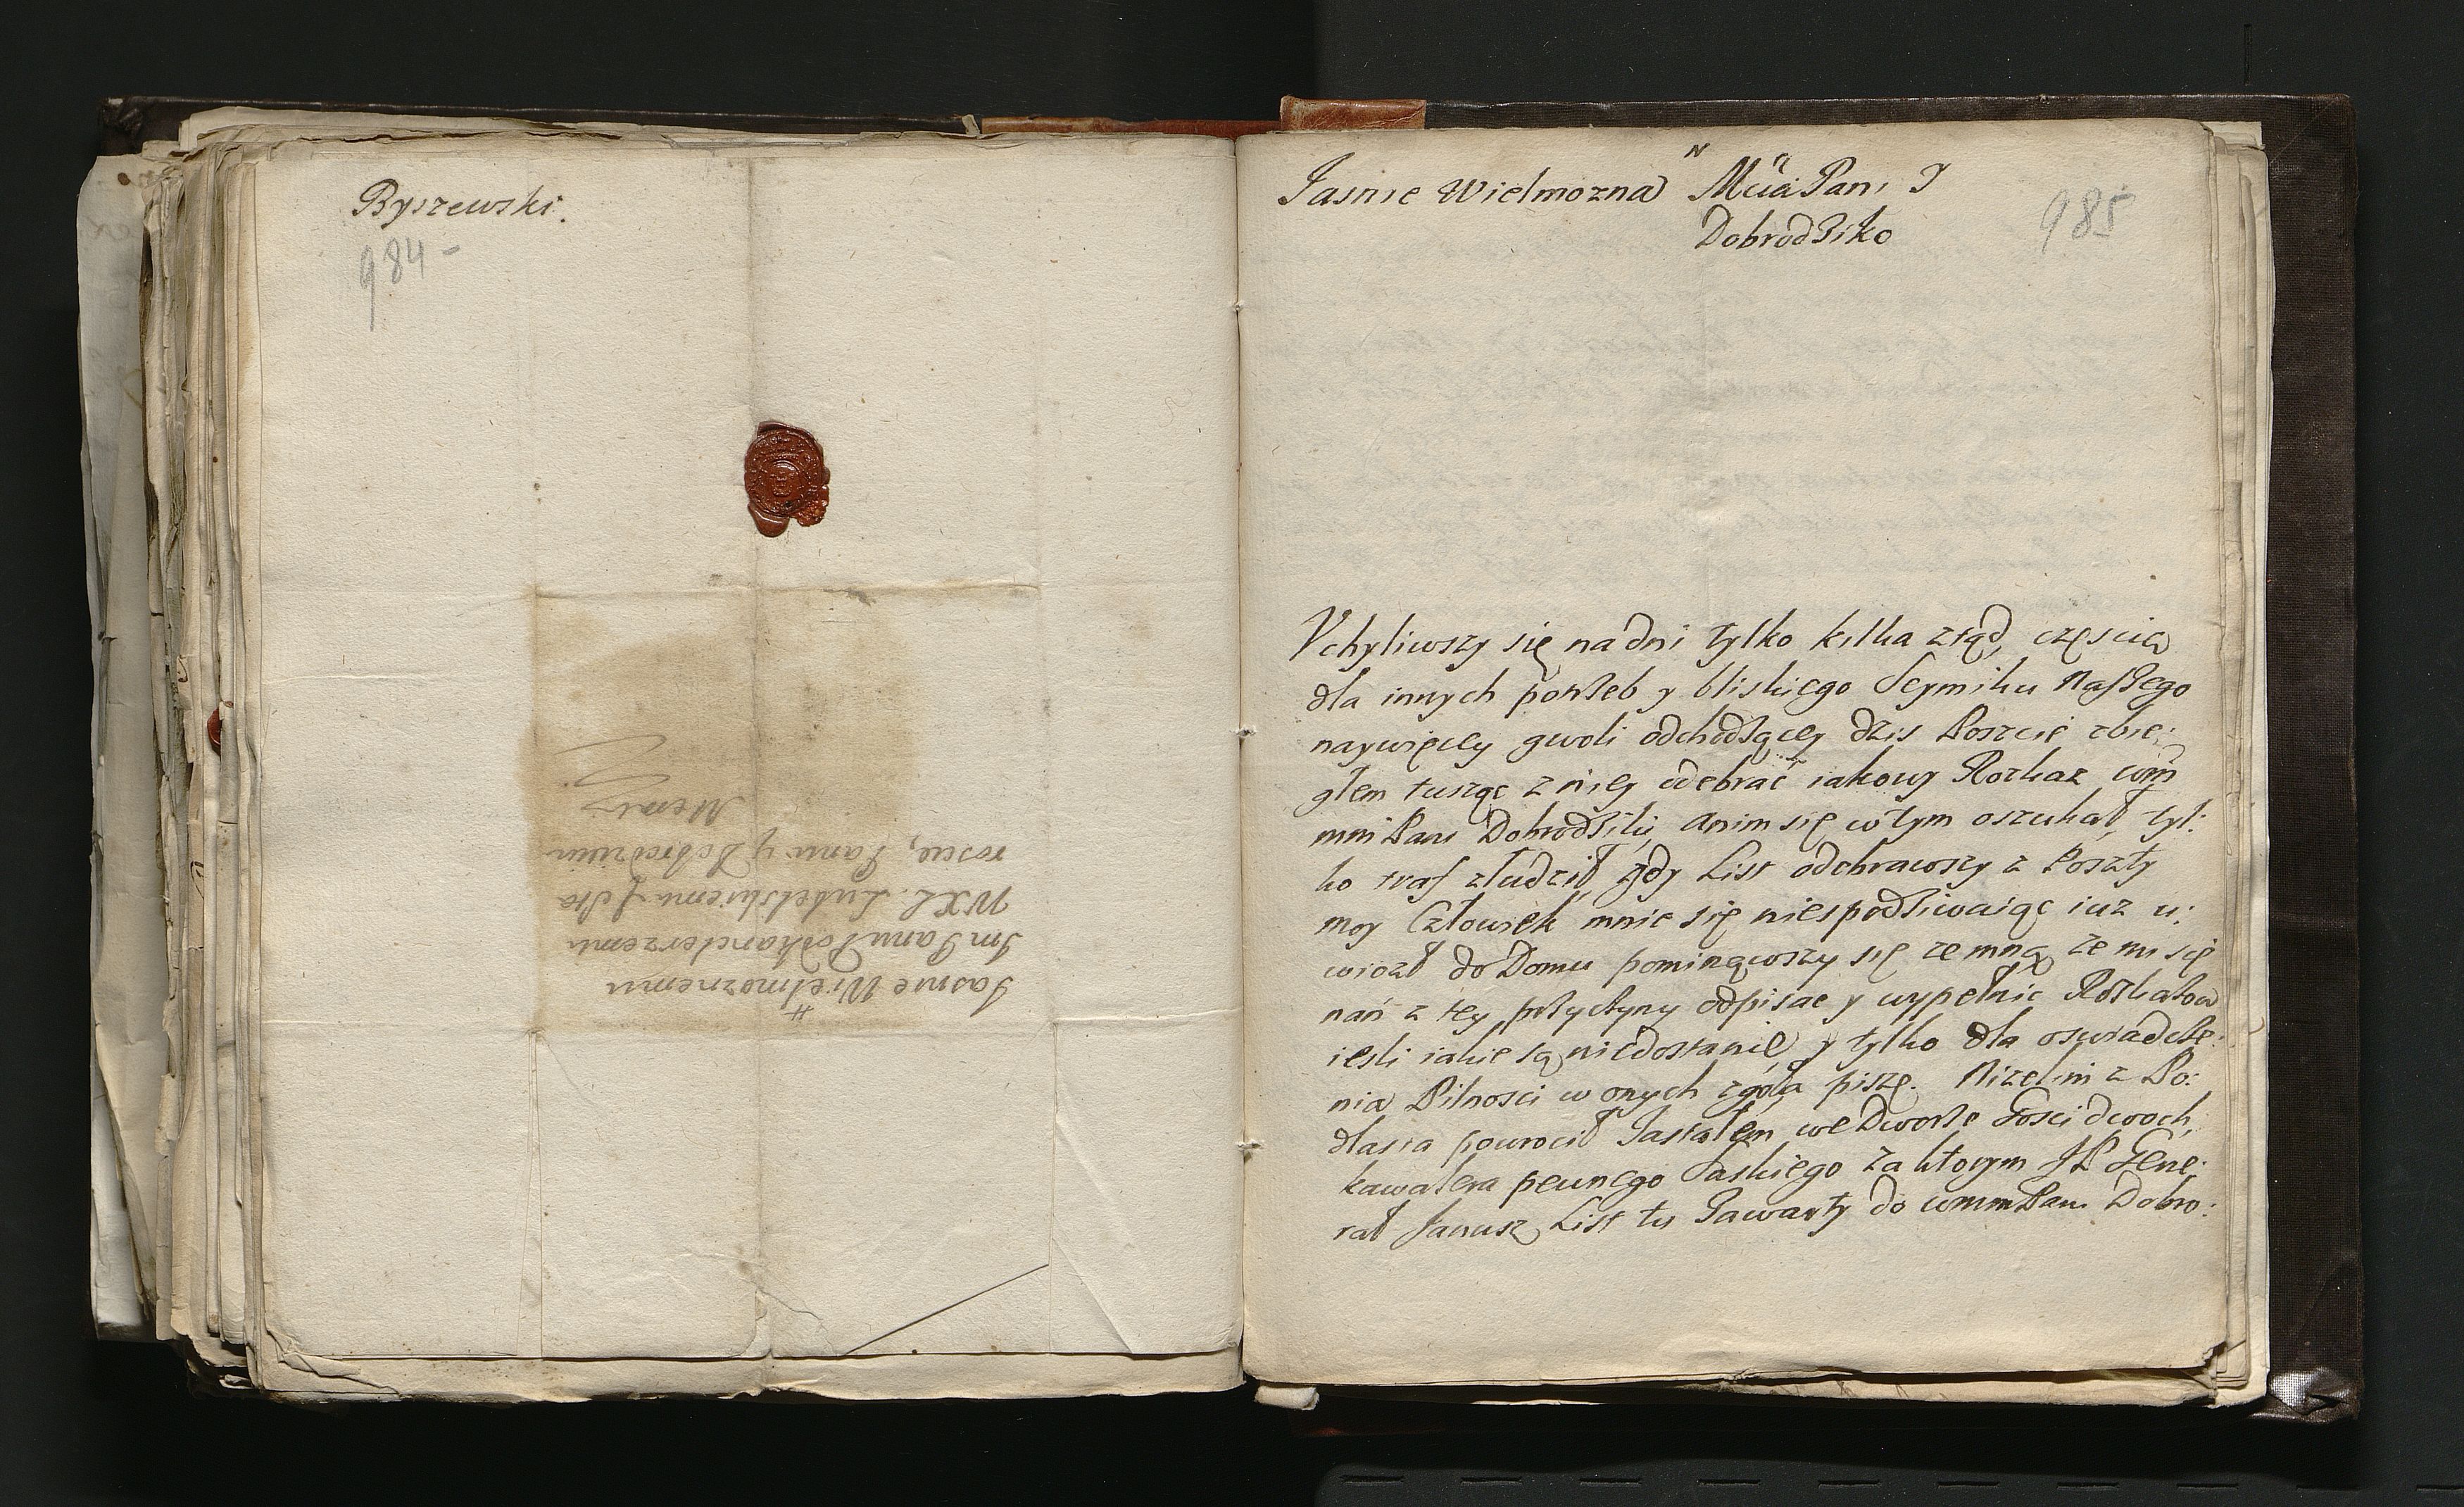 Byszewski.
984-
Jasnie Wielmoznemu
Im Panu Podkanclerzemu
WXL. Lubelskiemu Sta
roscie, Panu y Dobrodzieiu
Memu
985
Jasnie Wielmozna Mcia Pani J
Dobrodziko
Vchyliwszy się na dni tylko kilka ztąd, częscią
dla innych potrzeb y bliskiego Seymiku Naszego
naywięcey gwoli odchodzącey dzis Poszcie zbie:
głem tuszęc z niey odebrać iakowy Rozkaz wm
mm Pani Dobrodziki, anim się w tym oszukał, tyl:
ko traf złudził, gdy List odebrawszy z Poszty
moy Człowiek mnie się niespodziwaiąc iuz u:
wiozł do Domu pominąwszy się ze mną, ze mi się
nań z tey przyczyny odpisac y wypełnic Rozkazow
iesli iakie są niedostanie, y tylko dla oswiadcze:
nia Pilnosci w onych zgoła piszę. Nizelim z Po:
dlasia powrocił Zastałem we Dworze Gosci dwoch,
kawalera pewnego Saskiego za ktorym JP Gene:
rał Janusz List tu Zawarty do wmm Pani Dobro: